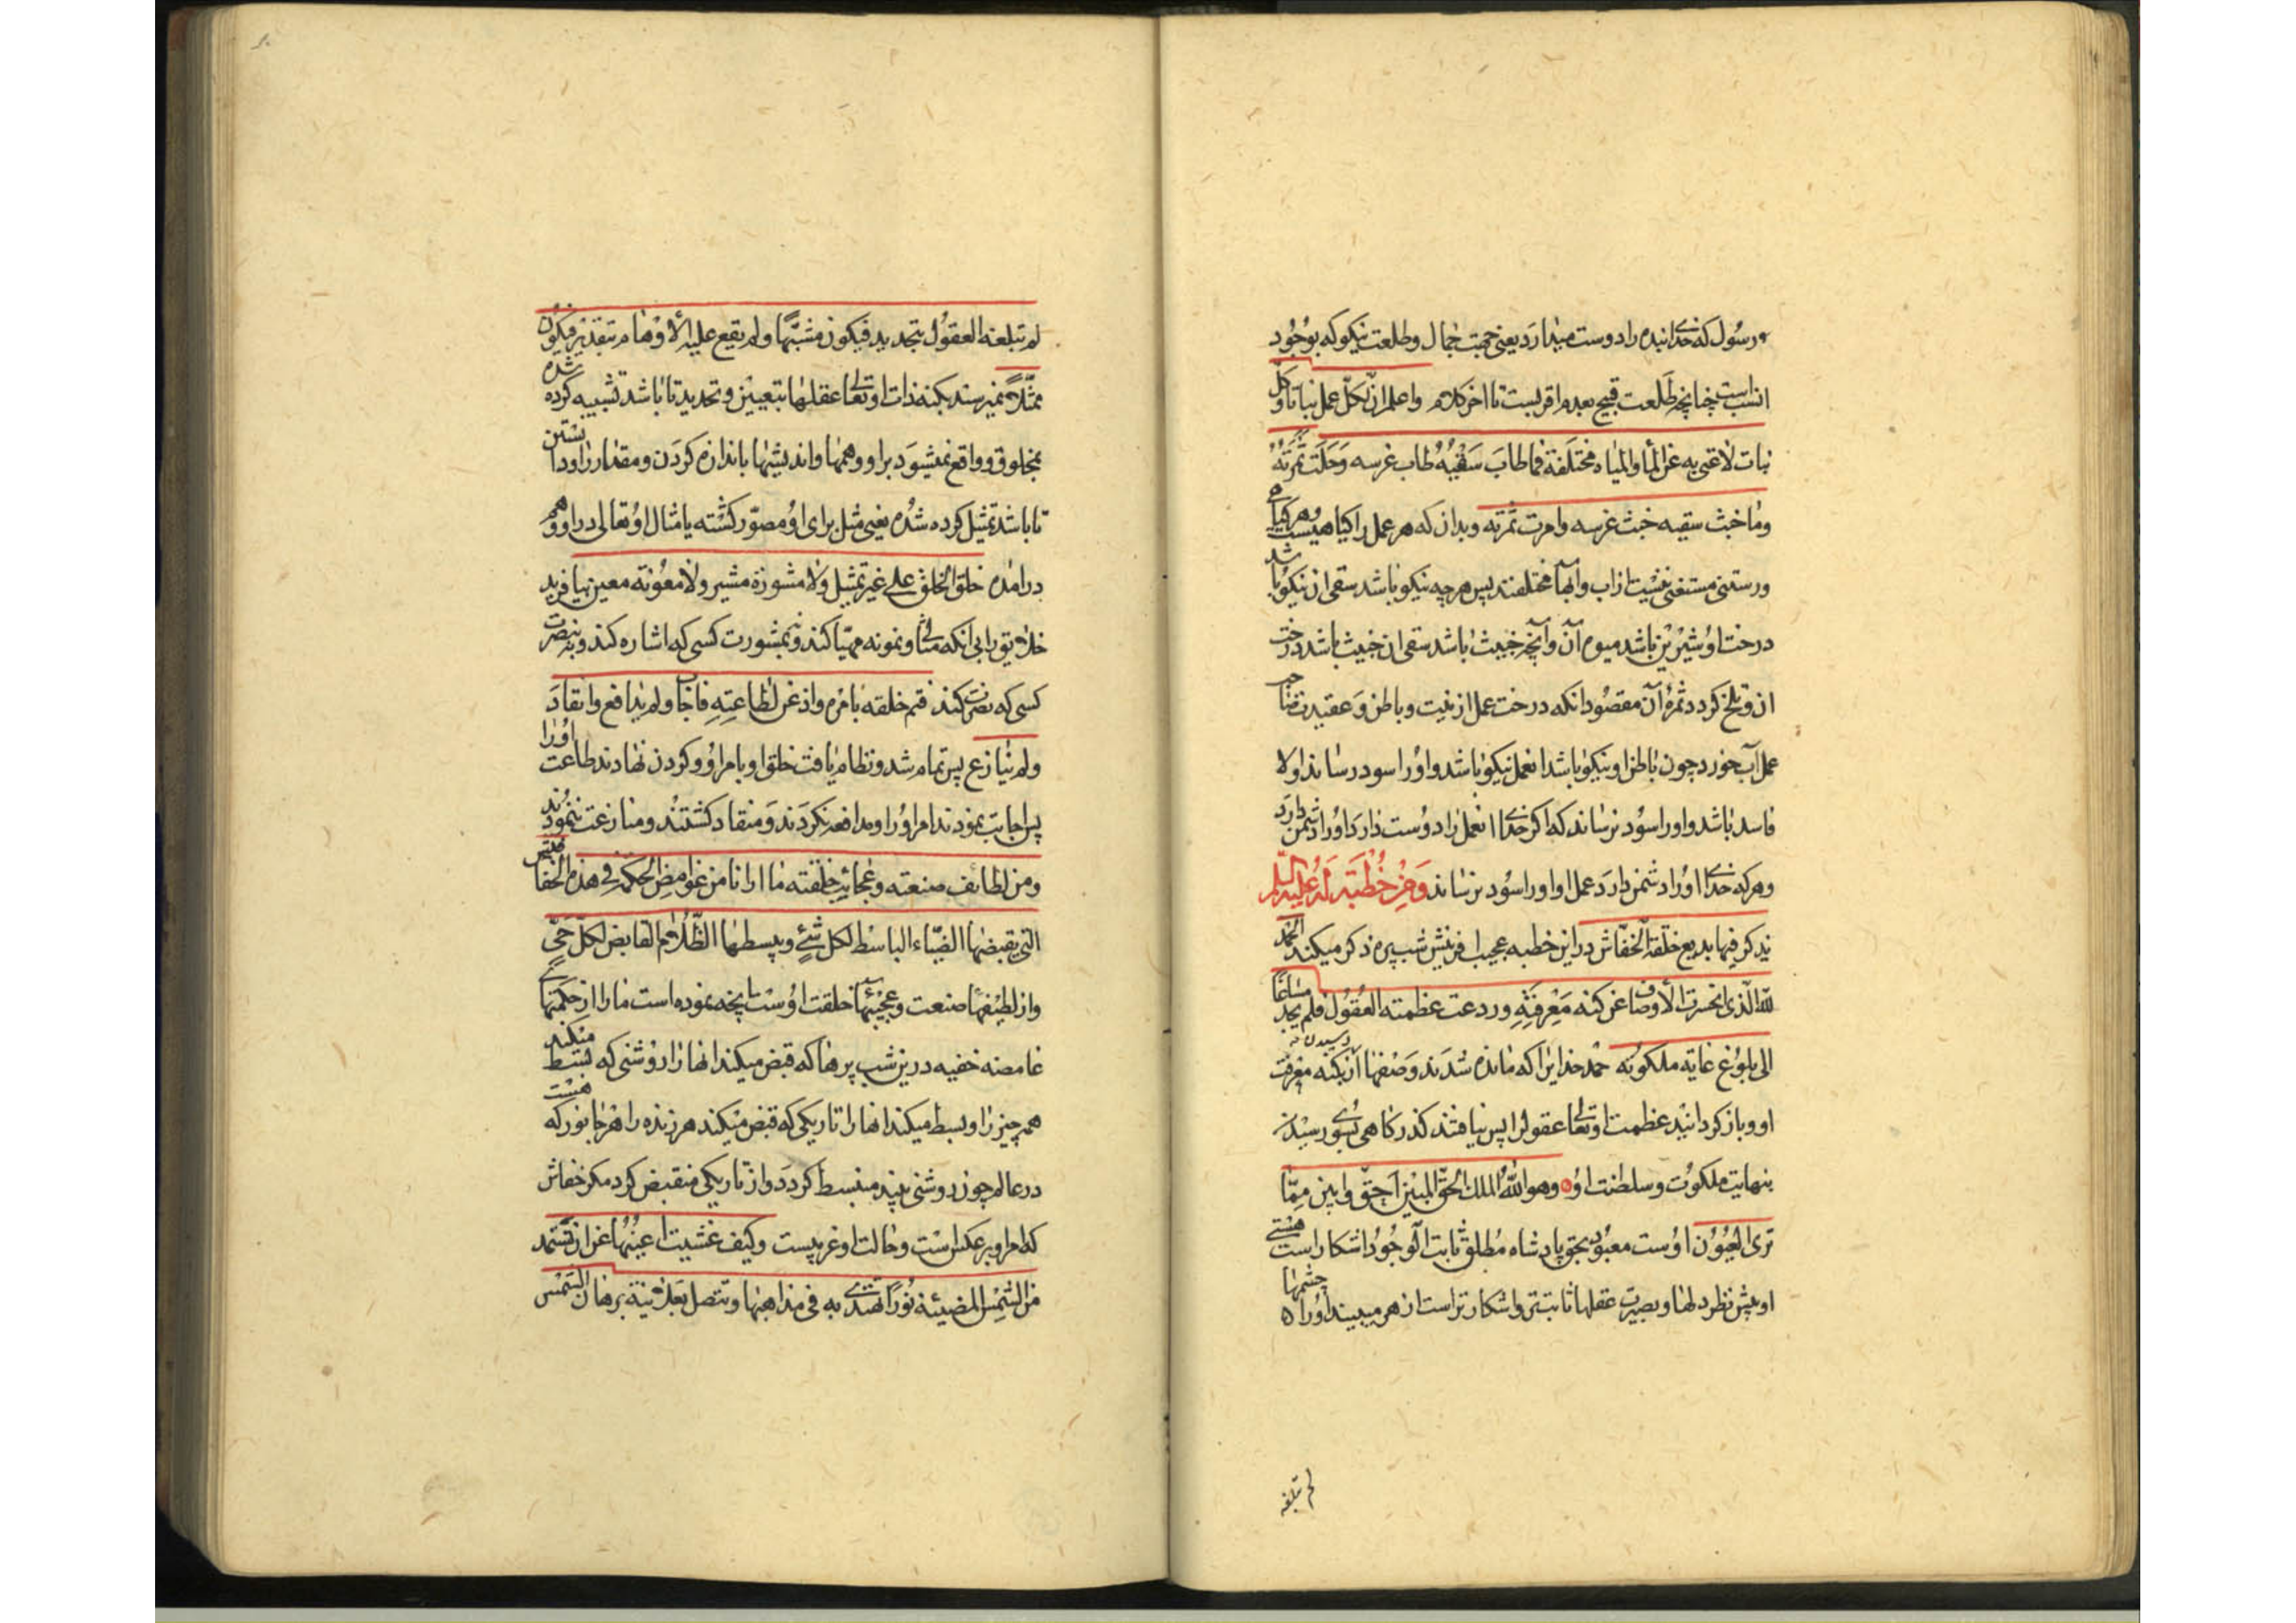 و رسول که خدای بنده را دوست میدارد یعنی جهت جمال و طلعت نیکو که بوجود
انسب است چنانچه طلعت قبیح بعدم اقربست تا اخر کلام واعلم ان لکل عمل نباتا وکل
نبات لا غنی به عن الماء والمیاه مختلفة فما طاب سقیه طاب غرسه وحلت ثمرته
وما خبث سقیه خبث غرسه وامرت ثمرته و بدان که هر عمل را کیاهیست و هر کیاهی
و رستنی مستغنی نیست از اب و ابها مختلفند پس هر چه نیکو باشد سقی ان نیکو باشد
درخت او شیرین باشد میوه آن و آنچه خبیث باشد سقی ان خبیث باشد درخت
ان و تلخ کردد ثمرهٔ آن مقصود انکه درخت عمل از نیت و باطن و عقیدت صاحب
عمل آب خورد چون باطن او نیکو باشد انعمل نیکو باشد و او را سود رساند و الا
فاسد باشد و او را سود نرساند که اکر خدای انعمل را دوست دارد او را دشمن دارد
و هر که خدای او را دشمن دارد عمل او او را سود نرساند ومن خطبة له علیه السلم
یذکر فیها بدیع خلقة الخفاش در این خطبه عجیب افرینش شب پره ذکر میکند الحمد
لله الذی انحسرت الاوصاف عن کنه معرفته وردعت عظمته العقول فلم یجد مساغا
الی بلوغ غایة ملکوته حمد خدایرا که مانده شدند وصفها از رسیدن به کنه معرفت
او و باز کردانید عظمت او تعالی عقول را پس نیافتند کذرکاهی بسوی رسیدن
بنهایت ملکوت و سلطنت او وهو الله الملک الحق المبین احق وابین مما
تری العیون اوست معبود بحق پادشاه مطلق ثابت الوجود اشکار است هستی
او پیش نظر دلها و بصیرت عقلها ثابت تر و اشکار تر است از هر چه میبیند او را چشمها
لم تبلغه
لم تبلغه العقول بتحدید فیکون مشبها ولم یقع علیه الاوهام بتقدیر فیکون
ممثلا نمیرسند بکنه ذات او تعالی عقلها بتعیین و تحدید تا باشد تشبیه کرده شده
بمخلوق و واقع نمیشود بر او وهمها و اندیشها باندازه کردن و مقدار را دانستن
تا باشد تمثیل کرده شده یعنی مثل برای او مصور کشته یا مثال او تعالی در او وهم
درامده خلق الخلق علی غیر تمثیل ولا مشورة مشیر ولا معونة معین بیافرید
خلایق را بی انکه مثالی و نمونه مهیا کند و نه بمشورت کسی که اشاره کند و نه بنصرت
کسی که نصرت کند فتم خلقه بامره واذعن لطاعته فاجاب ولم یدافع وانقاد
ولم ینازع پس تمام شد و نظام یافت خلق او بامر او و کردن نهادند طاعت او را
پس اجابت نمودند امر او را و مدافعه نکردند و منقاد کشتند و منازعت ننمودند
ومن لطایف صنعته وعجائب خلقته ما ارانا من غوامض الحکمة فی هذه الخفافیش
التی یقبضها الضیاء الباسط لکل شئ ویبسطها الظلام القابض لکل حی
و از لطیفهای صنعت و عجیبهای خلقت اوست انچه نموده است ما را از حکمتهای
غامضه خفیه در این شب پرها که قبض میکند انها را روشنی که بسط میکند
همه چیز را و بسط میکند انها را تاریکی که قبض میکند هر زنده را هر جانور که هست
در عالم چون روشنی بیند منبسط کردد و از تاریکی منقبض کردد مکر خفاش
که امر او بر عکس است و حالت او غریبست وکیف عشیت اعینها عن ان تستمد
من الشمس المضیئة نورا تهتدی به فی مذاهبها وتتصل بعلانیة برهان الشمس